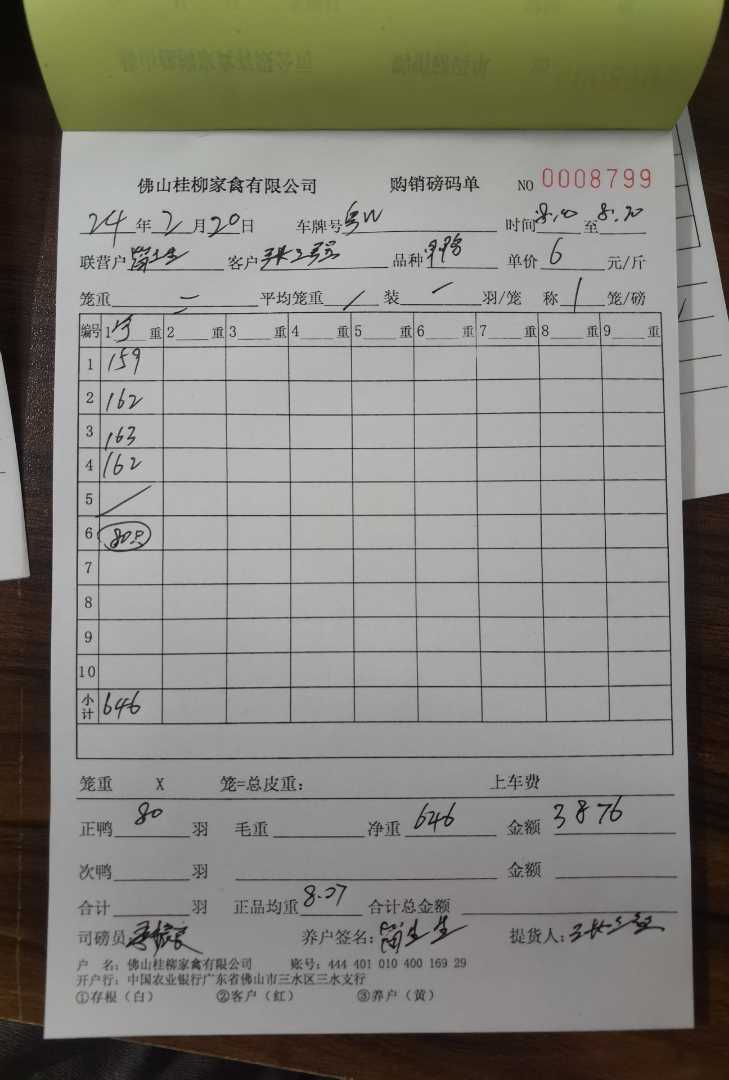 佛山桂柳家禽有限公司 购销磅码单 NO 0008799
24年2月20日 车牌号粤W 时间8.10至8.20
联营户 客户 品种 单价6元/斤
笼重 平均笼重/ 装 羽/笼 称1笼/磅
编号 1 重 2 重 3 重 4 重 5 重 6 重 7 重 8 重 9 重
1 159
2 162
3 163
4 162
5
6 80只
7
8
9
10
小计 646
笼重 X 笼=总皮重: 上车费
正鸭80羽 毛重 净重646 金额3876
次鸭 羽 金额
合计 羽 正品均重8.07 合计总金额
司磅员 养户签名: 提货人:
户 名:佛山桂柳家禽有限公司 账号:444 401 010 400 169 29
开户行:中国农业银行广东省佛山市三水区三水支行
①存根(白) ②客户(红) ③养户(黄)